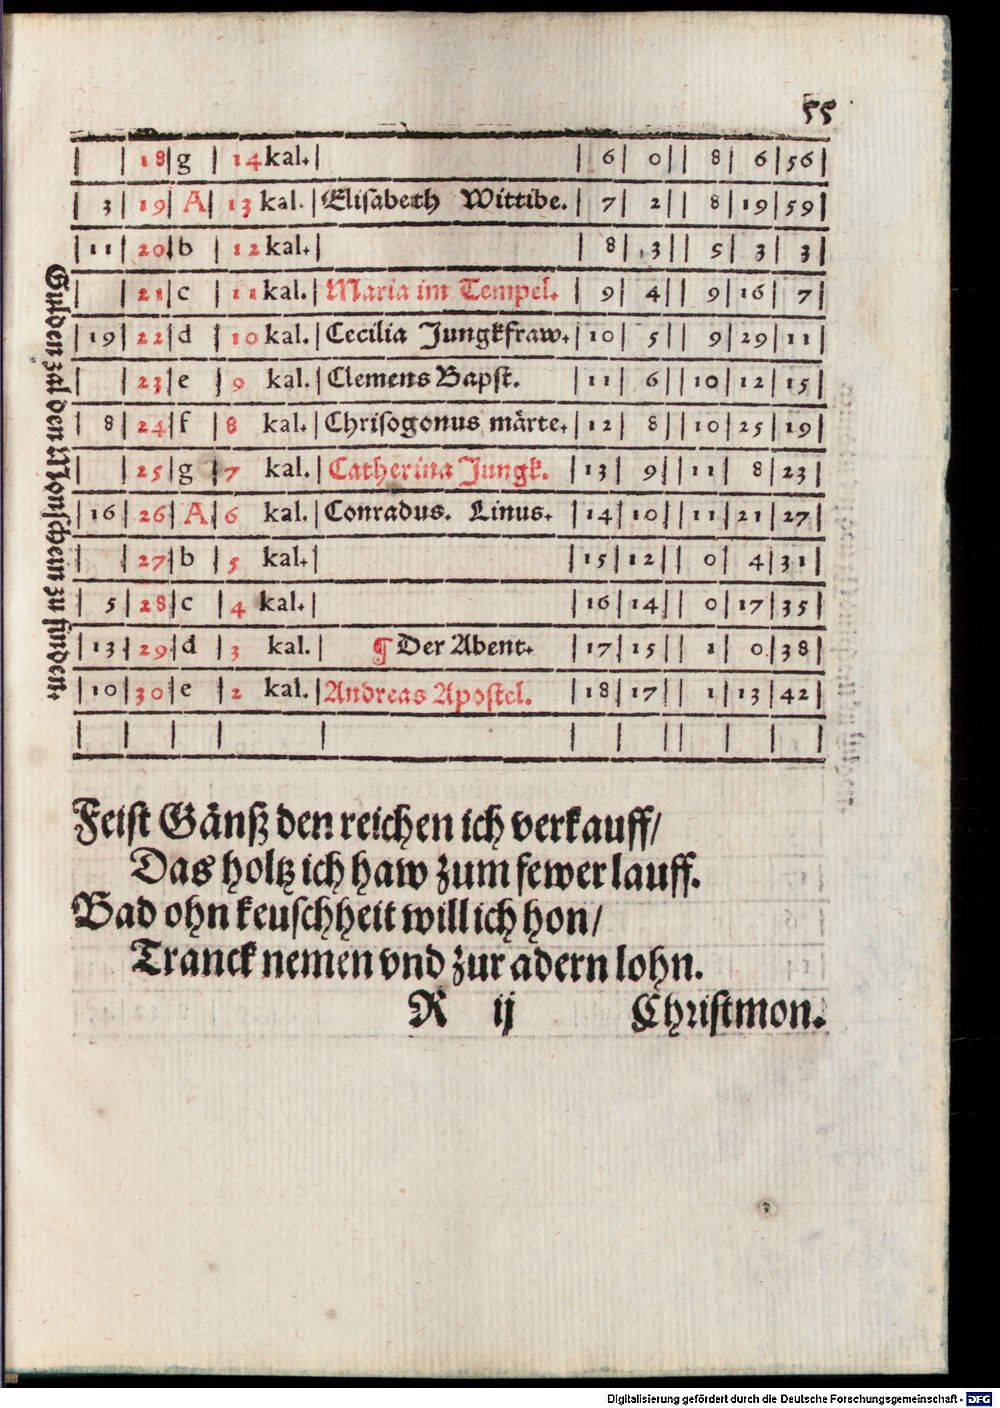 55
| | 18 | g | 14 kal. | | 6 | 0 | | 8 | 6 | 56 |
| 3 | 19 | A | 13 kal. | Elisabeth Wittibe. | 7 | 2 | | 8 | 19 | 59 |
| 11 | 20 | b | 12 kal. | | 8 | 3 | | 5 | 3 | 3 |
| | 21 | c | 11 kal. | Maria im Tempel. | 9 | 4 | | 9 | 16 | 7 |
| 19 | 22 | d | 10 kal. | Cecilia Jungkfraw. | 10 | 5 | | 9 | 29 | 11 |
| | 23 | e | 9 kal. | Clemens Bapst. | 11 | 6 | | 10 | 12 | 15 |
| 8 | 24 | f | 8 kal. | Chrisogonus märte. | 12 | 8 | | 10 | 25 | 19 |
| | 25 | g | 7 kal. | Catherina Jungk. | 13 | 9 | | 11 | 8 | 23 |
| 16 | 26 | A | 6 kal. | Conradus. Linus. | 14 | 10 | | 11 | 21 | 27 |
| | 27 | b | 5 kal. | | 15 | 12 | | 0 | 4 | 31 |
| 5 | 28 | c | 4 kal. | | 16 | 14 | | 0 | 17 | 35 |
| 13 | 29 | d | 3 kal. | ¶ Der Abent. | 17 | 15 | | 1 | 0 | 38 |
| 10 | 30 | e | 2 kal. | Andreas Apostel. | 18 | 17 | | 1 | 13 | 42 |
Gulden zal den Monschein zu finden.
Feist Gänß den reichen ich verkauff/
Das holtz ich haw zum fewer lauff.
Bad ohn keuschheit will ich hon/
Tranck nemen vnd zur adern lohn.
R ij Christmon.
Digitalisierung gefördert durch die Deutsche Forschungsgemeinschaft - DFG